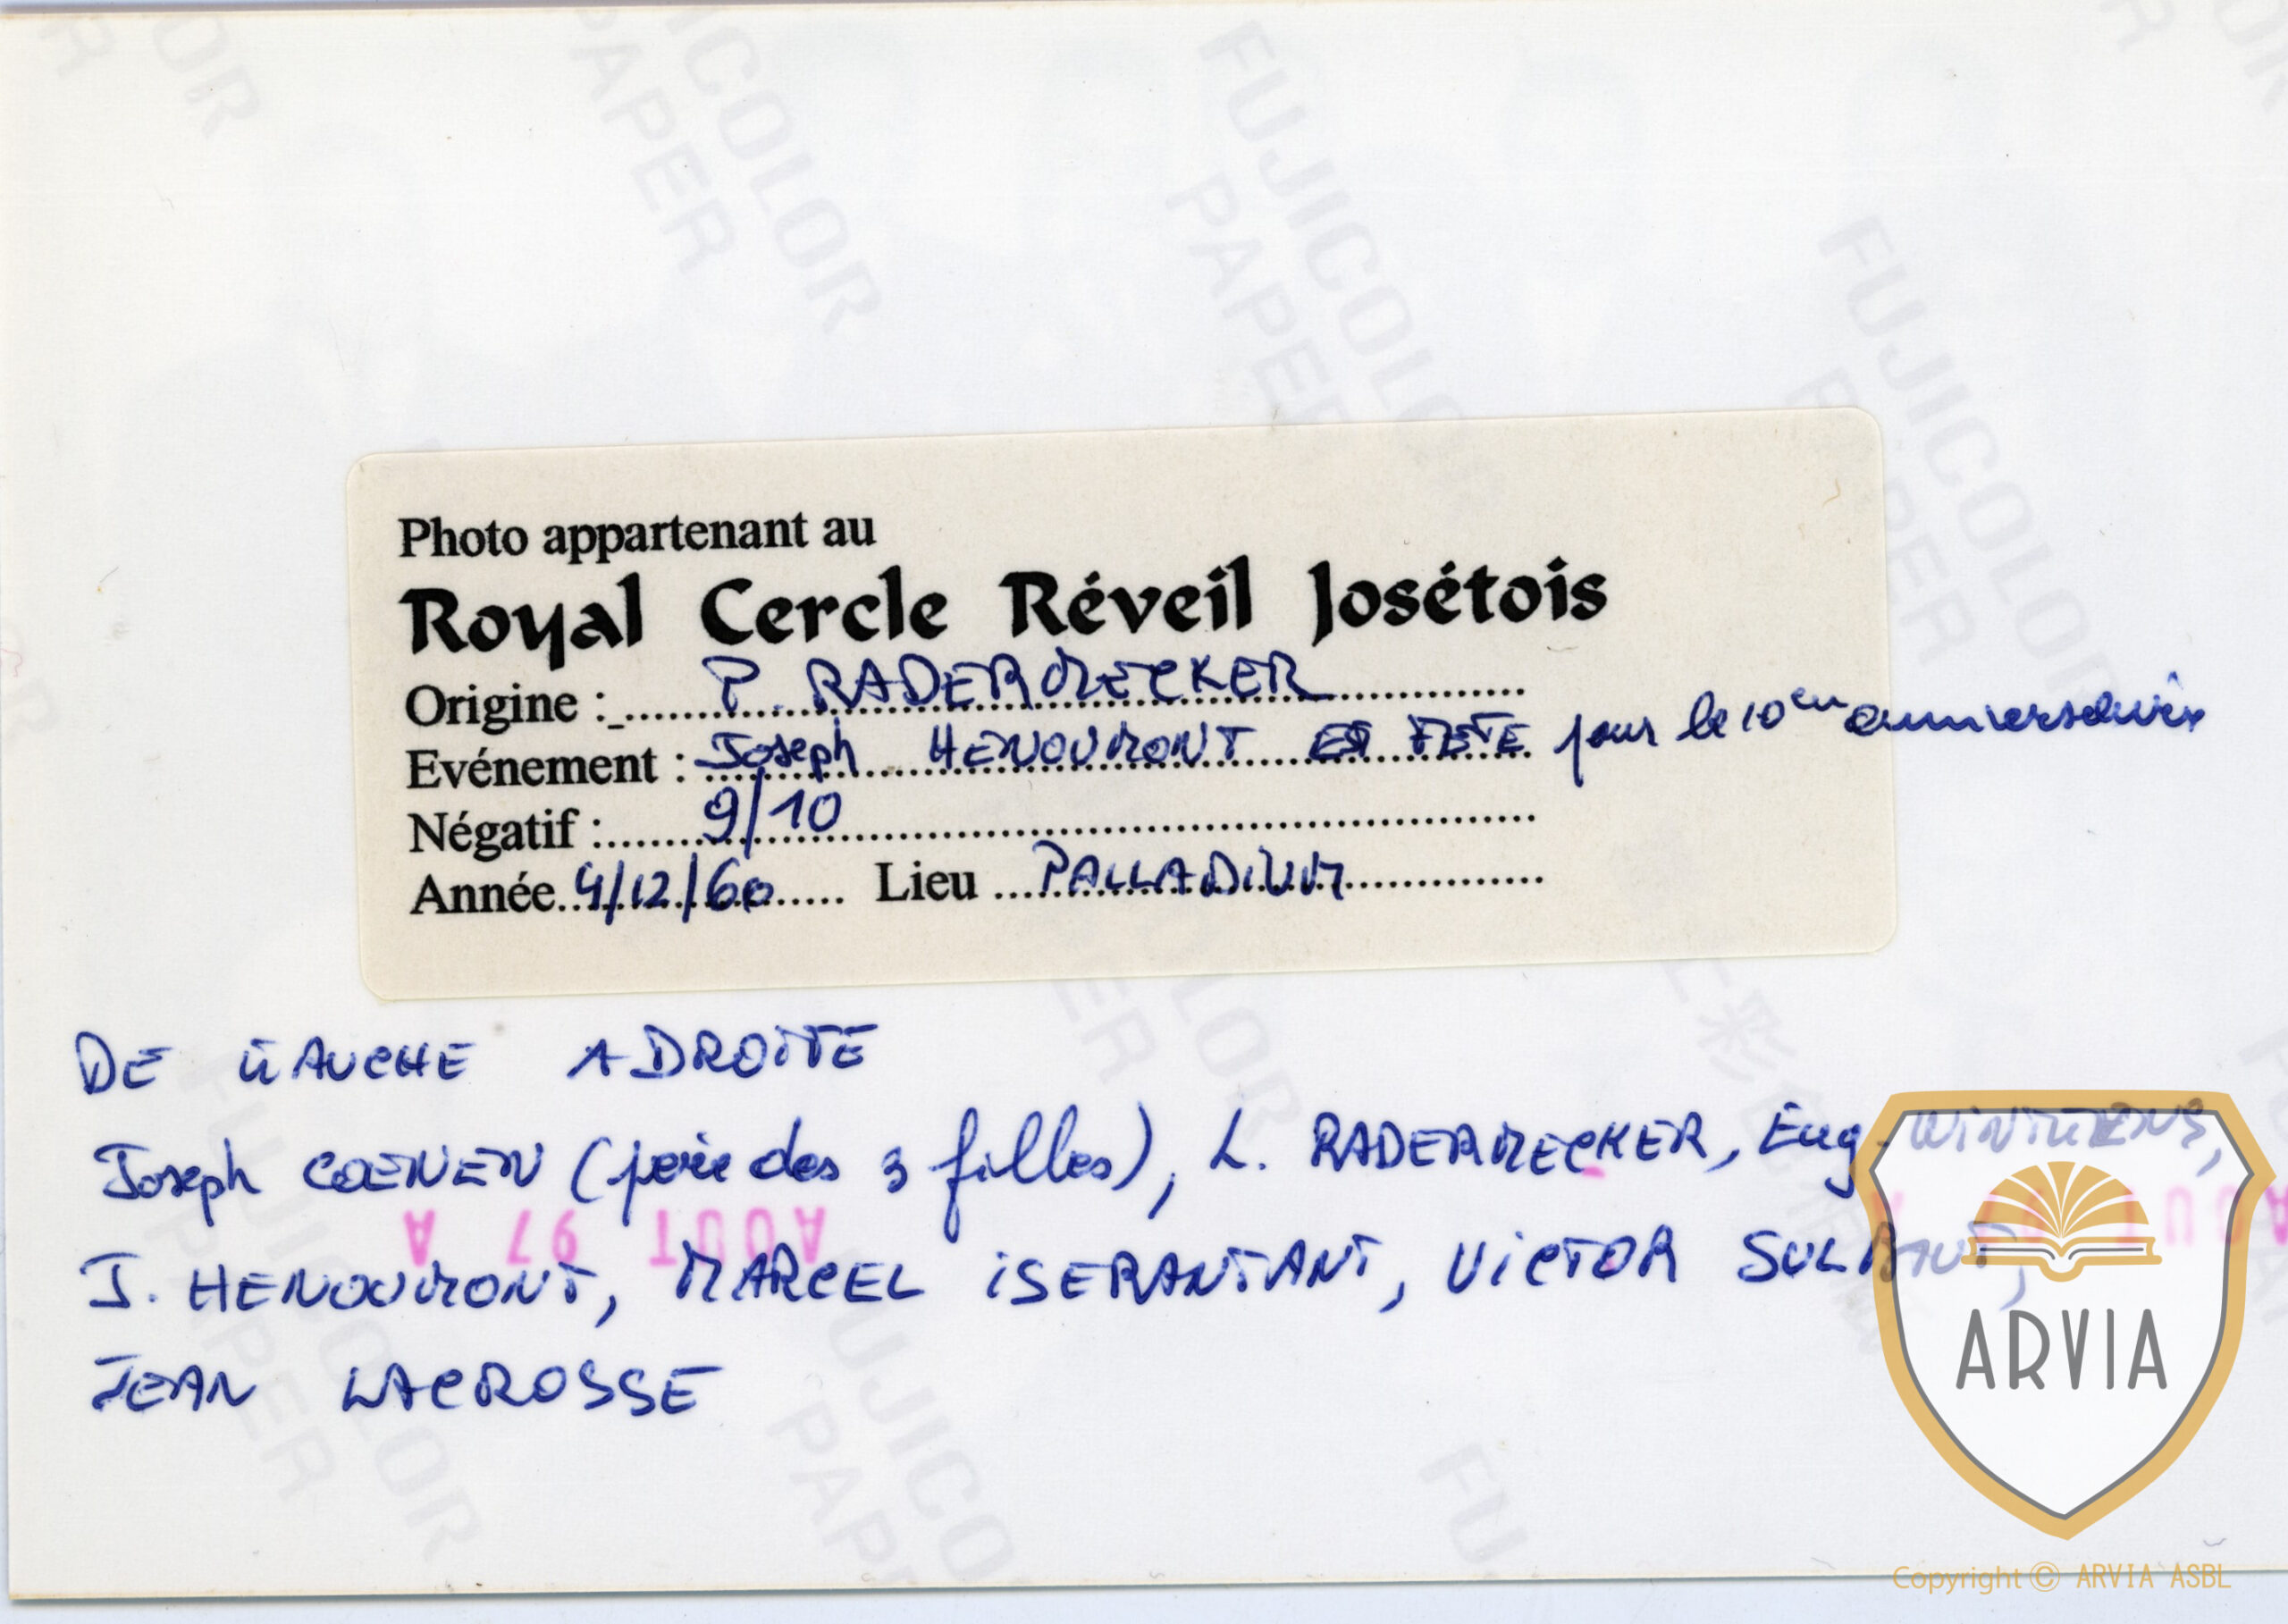 FUJICOLOR PAPER
Photo appartenant au
Royal Cercle Réveil Josétois
Origine : P. RADERMECKER
Evénement : Joseph HENOUMONT EST FETE pour le 10em anniversaire
Négatif : 9/10
Année 4/12/60 Lieu PALLADIUM
DE GAUCHE A DROITE
Joseph COENEN (père des 3 filles), L. RADERMECKER, Eug.
AOUT 97 A
J. HENOUMONT, MARCEL ISERANTANT, VICTOR
JEAN LACROSSE
ARVIA
Copyright © ARVIA ASBL